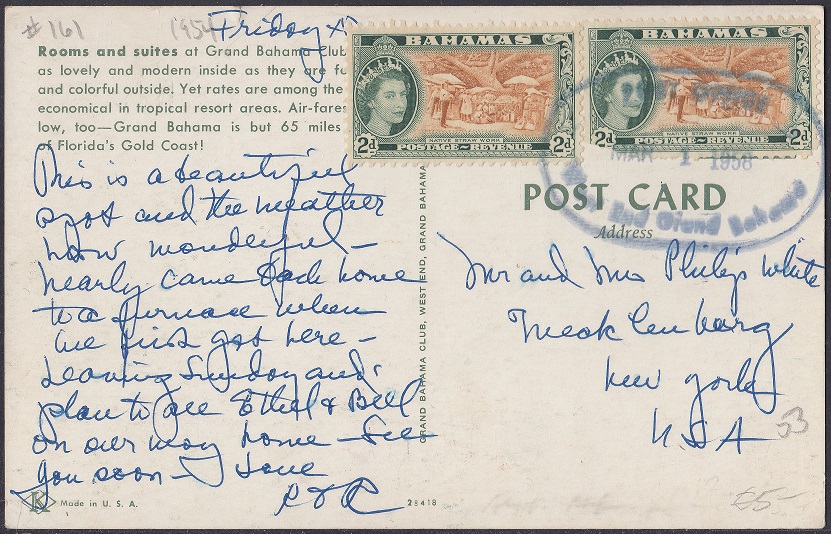 #161
1954
Friday
Rooms and suites at Grand Bahama Club
as lovely and modern inside as they are
and colorful outside. Yet rates are among the
economical in tropical resort areas. Air-fares
low, too—Grand Bahama is but 65 miles
of Florida's Gold Coast!
This is a beautiful
spot and the weather
now wonderful –
nearly came back home
to a furnace when
we first got here –
Leaving Sunday and
plan to see Ethel & Bill
on our way home – See
you soon – Love
K
Made in U. S. A.
28418
GRAND BAHAMA CLUB, WEST END, GRAND BAHAMA
BAHAMAS
2d
NATIVE STRAW WORK
POSTAGE~REVENUE
2d
BAHAMAS
2d
NATIVE STRAW WORK
POSTAGE~REVENUE
2d
Post Office
MAR 1 1958
West End Grand Bahama
POST CARD
Address
Mr and Mrs Philip White
Mecklenburg
New York
USA
53
£5-